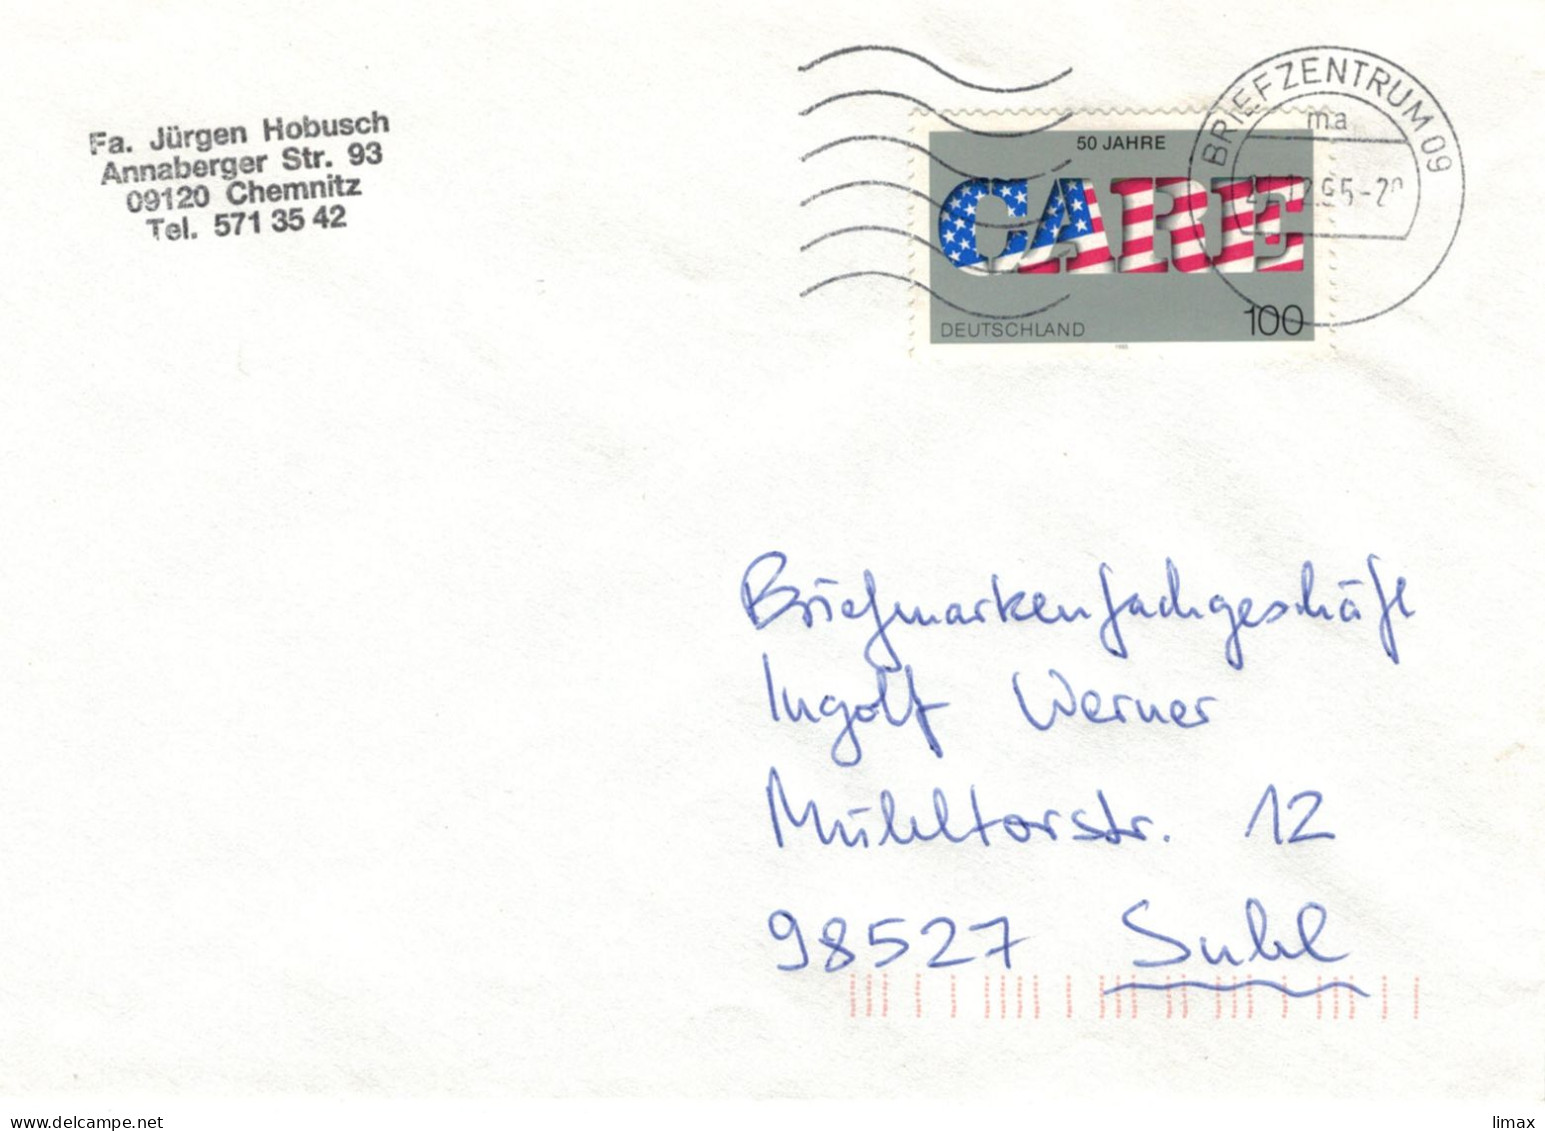 Fa. Jürgen Hobusch
Annaberger Str. 93
09120 Chemnitz
Tel. 571 35 42
BRIEFZENTRUM 09
ma
50 JAHRE
CARE
DEUTSCHLAND
100
Briefmarkenfachgeschäft
Ingolf Werner
Mühltorstr. 12
98527 Suhl
www.delcampe.net
limax